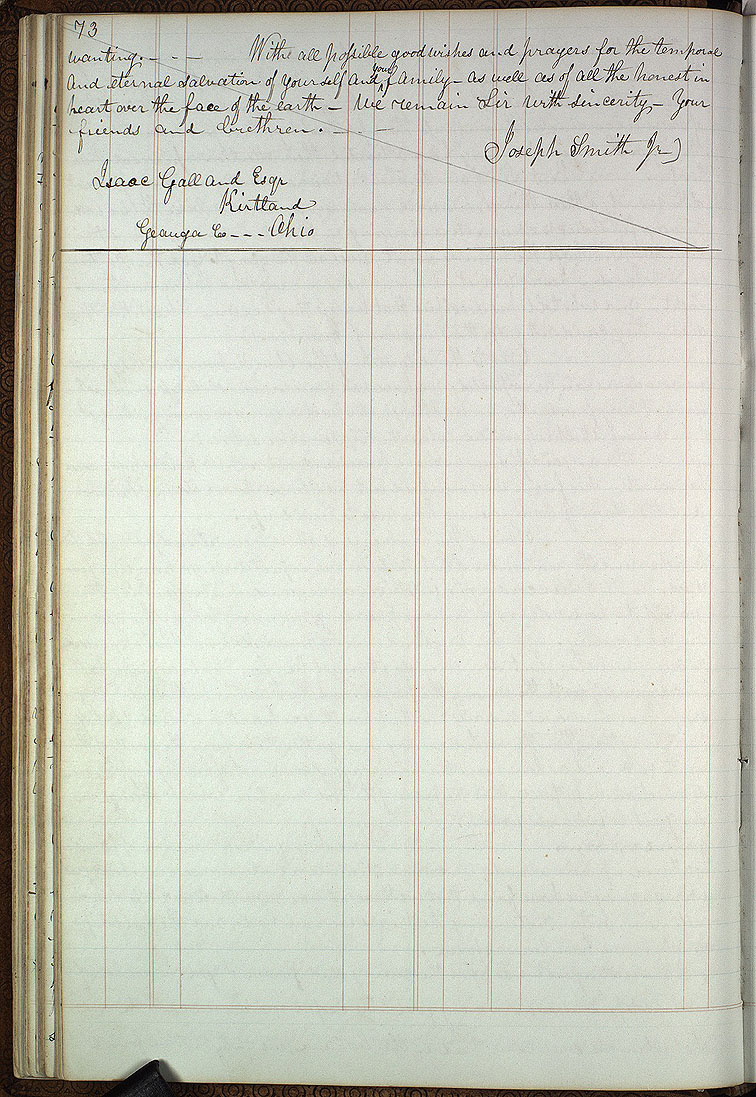 73
wanting. - - - Withe all possible good wishes and prayers for the temporal
and eternal salvation of yourself and your family - as well as of all the honest in
heart over the face of the earth - We remain Sir with sincerity - Your
friends and brethren. - - -
Joseph Smith Jr
Isaac Galland Esqr
Kirtland
Geauga Co - - - Ohio